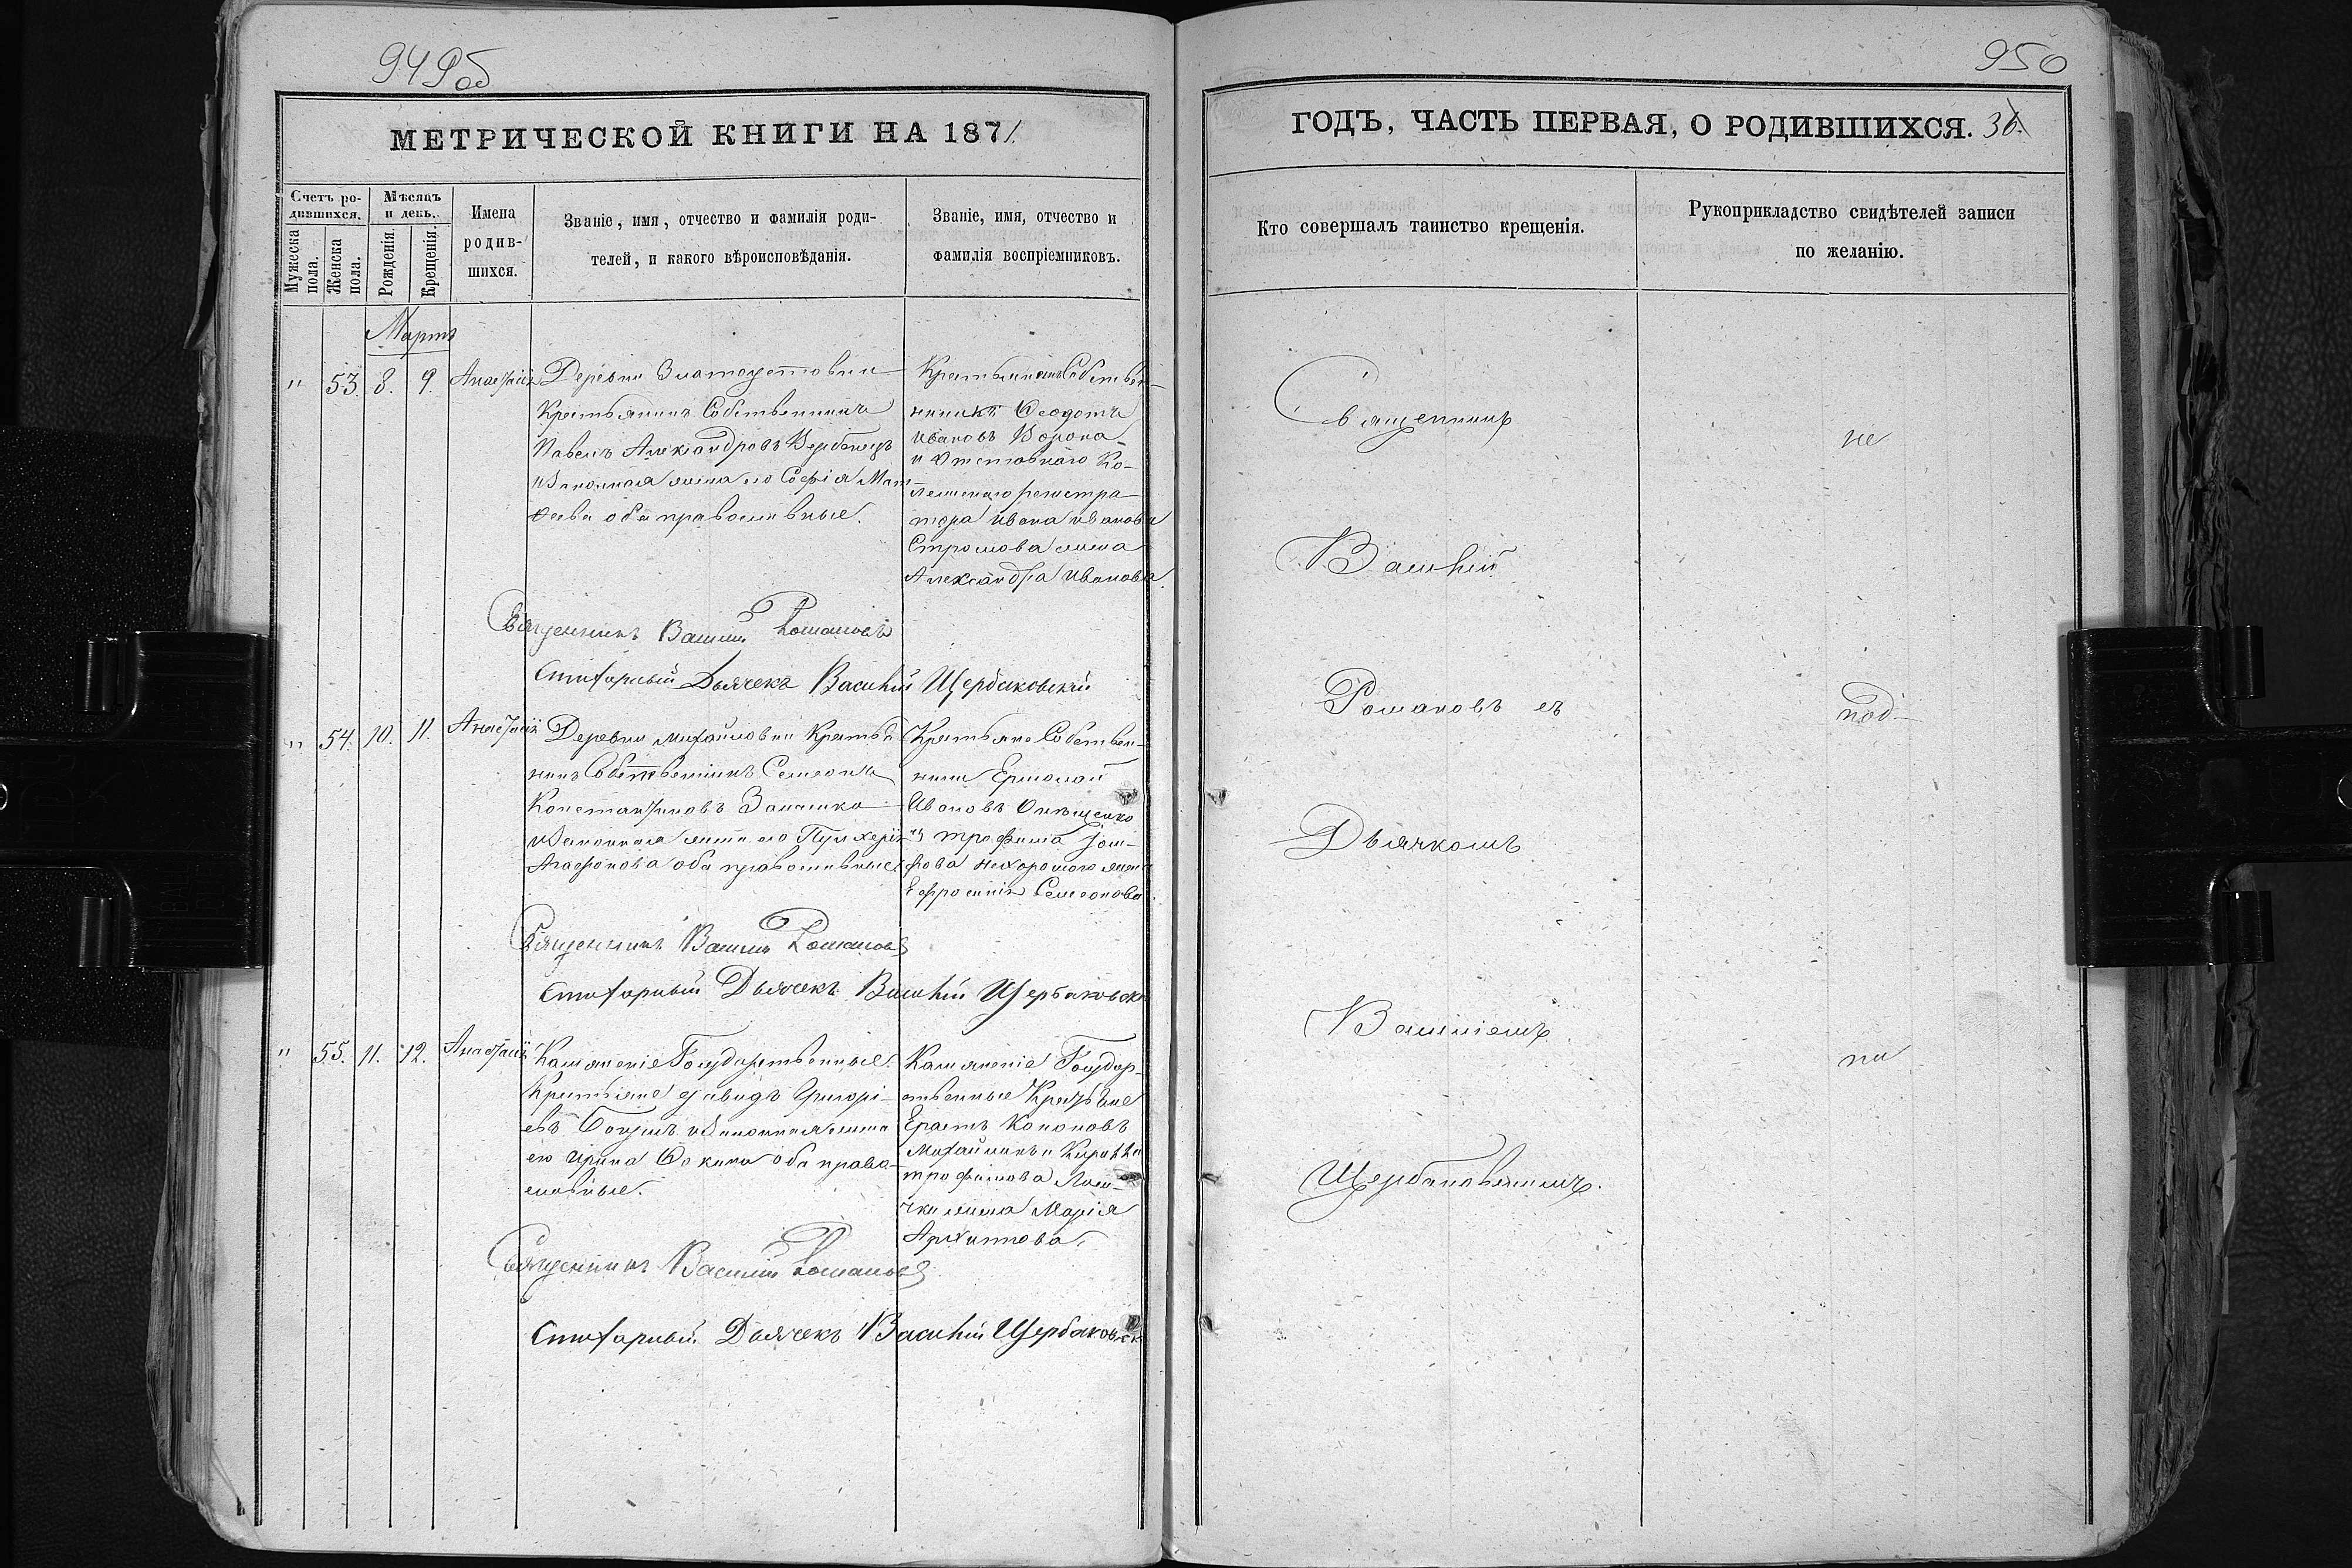 949 об
МЕТРИЧЕСКОЙ КНИГИ НА 1871.
Счетъ ро-
дившихся.
Мужеска пола.
Женска пола.
Мѣсяцъ
и день.
Рожденія.
Крещенія.
Имена
родив-
шихся.
Званіе, имя, отчество и фамилія роди-
телей, и какого вѣроисповѣданія.
Званіе, имя, отчество и
фамилія воспріемниковъ.
Мартъ
" 53. 8. 9. Анастасія
Деревни Златоустовки
Крестьянинъ Собственникъ
Павелъ Александровъ Вербецъ
и Законная жена его Софія Мат-
ѳеева оба православные.
Крестьянинъ Собствен-
никъ Ѳеодотъ
Ивановъ Ворона
и Отставнаго Ко-
лежскаго регистра-
тора Ивана Иванова
жена
Александра Иванова.
Священникъ Василій Романовъ
Стихарный Дьячекъ Василій Щербаковскій
" 54. 10. 11. Анастасія
Деревни Михайловки Крестья-
нинъ Собственникъ Семеонъ
Константиновъ Заичко
и Законная жена его Пулхерія
Агафонова оба православные.
Крестьяне Собствен-
ники Ермолай
Ивановъ Онищенко
и Трофима
Нехорошого жена
Ефросинія Семеонова.
Священникъ Василій Романовъ
Стихарный Дьячекъ Василій Щербаковск
" 55. 11. 12. Анастасія
Государственные
Крестьяне Давидъ Григорі-
евъ и Законная жена
его Ирина оба право-
славные.
Государ-
ственные Крестьяне
Ерастъ Кононовъ
и
Трофимова
жена Марія
Архипова.
Священникъ Василій Романовъ
Стихарный Дьячекъ Василій Щербаковск
950
ГОДЪ, ЧАСТЬ ПЕРВАЯ, О РОДИВШИХСЯ. 36.
Кто совершалъ таинство крещенія.
Рукоприкладство свидѣтелей записи
по желанію.
Священникъ
не
Василій
Романовъ съ
под-
Дьячкомъ
Василіемъ
пи
Щербаковскимъ.